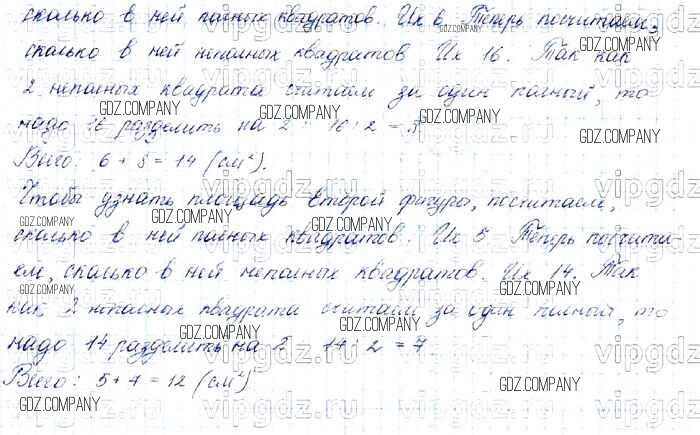 сколько в ней полных квадратов. Их 6. Теперь посчитаем,
сколько в ней неполных квадратов Их 16. Так как
2 неполных квадрата считаем за один полный, то
надо 16 разделить на 2: 16:2 = 8.
Всего: 6 + 8 = 14 (см²).
Чтобы узнать площадь второй фигуры, посчитаем,
сколько в ней полных квадратов. Их 5 Теперь посчита
ем, сколько в ней неполных квадратов. Их 14. Так
как 2 неполных квадрата считаем за один полный, то
надо 14 разделить на 2 14:2 = 7
Всего: 5 + 7 = 12 (см²)
GDZ.COMPANY
vipgdz